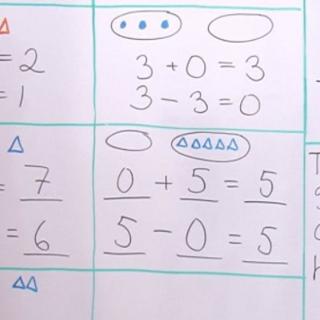 = 2
= 1
3 + 0 = 3
3 - 3 = 0
= 7
= 6
0 + 5 = 5
5 - 0 = 5